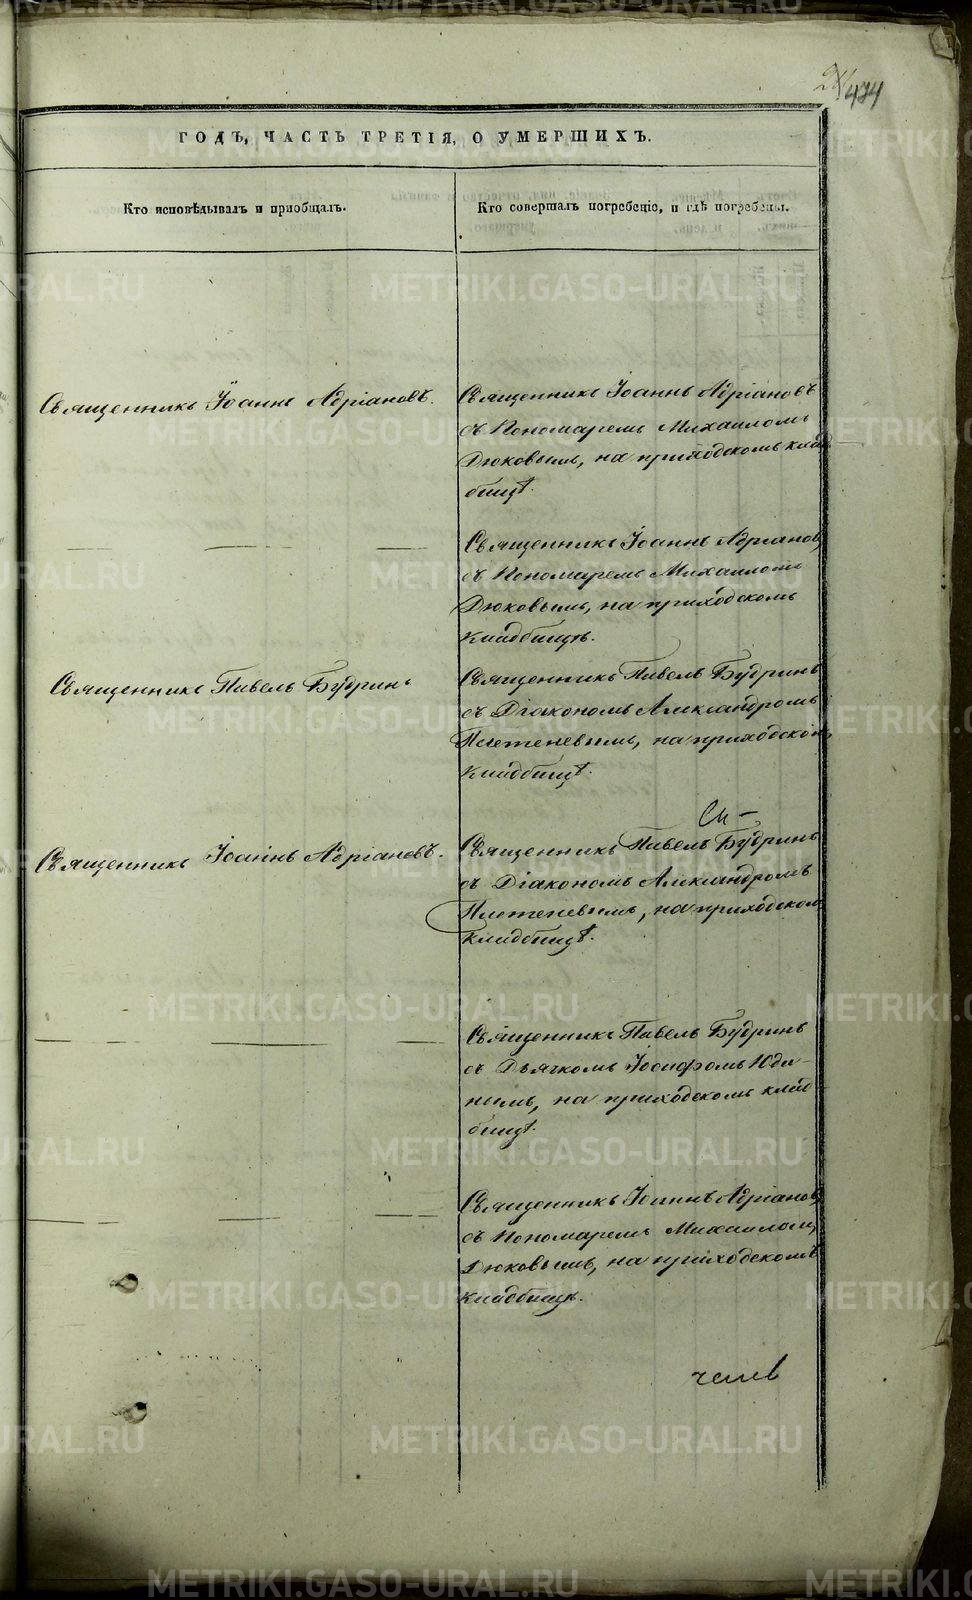 474
ГОДЪ, ЧАСТЬ ТРЕТІЯ, О УМЕРШИХЪ.
Кто исповѣдывалъ и пріобщалъ.
Кто совершалъ погребеніе, и гдѣ погребены.
Священникъ Іоаннъ Адріановъ.
Священникъ Іоаннъ Адріановъ
съ Пономаремъ Михаиломъ
Дюковымъ, на приходскомъ клад
бищѣ.
Священникъ Іоаннъ Адріановъ
съ Пономаремъ Михаиломъ
Дюковымъ, на приходскомъ
кладбищѣ.
Священникъ Павелъ Будринъ
Священникъ Павелъ Будринъ
съ Діакономъ Александромъ
Плетеневымъ, на приходском
кладбищѣ.
Священникъ Іоаннъ Адріановъ.
Священникъ Павелъ Будринъ
съ Діакономъ Александромъ
Плетеневымъ, на приходском
кладбищѣ.
Священникъ Павелъ Будринъ
съ Дьячкомъ Іосифомъ Юди-
нымъ, на приходскомъ клад
бищѣ.
Священникъ Іоаннъ Адріановъ
съ Пономаремъ Михаиломъ
Дюковымъ, на приходскомъ
кладбищѣ.
METRIKI.GASO-URAL.RU